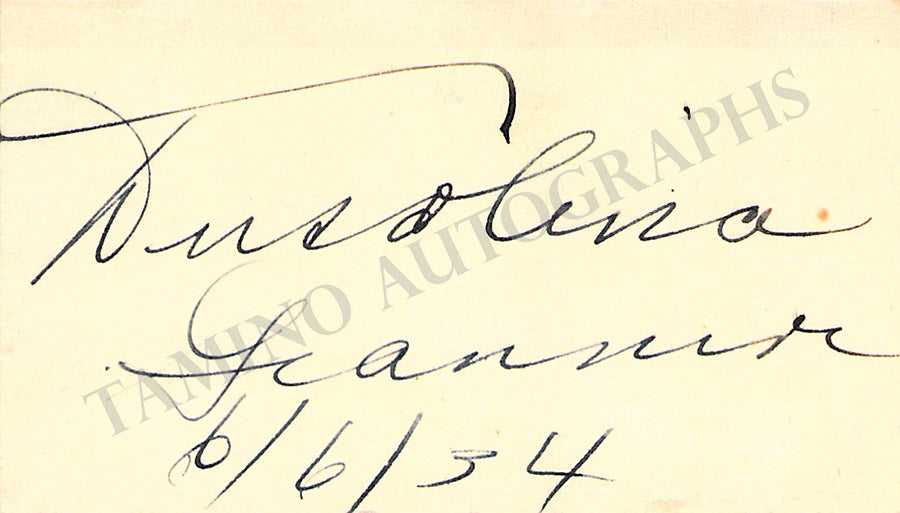 Dusolina
Giannini
6/6/34
TAMINO AUTOGRAPHS